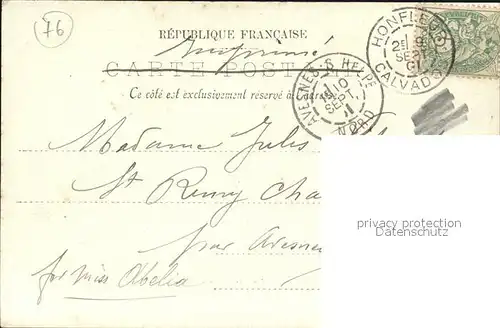 76
RÉPUBLIQUE FRANÇAISE
Imprimé
CARTE POSTALE
Ce côté est exclusivement réservé à
HONFLEUR
2E
SEPT
01
CALVADOS
AVESNES-S-HELPE
10
SEPT
NORD
Madame Jules
St Remy Cha
par Avesne
for Miss Abelia
privacy protection
Datenschutz